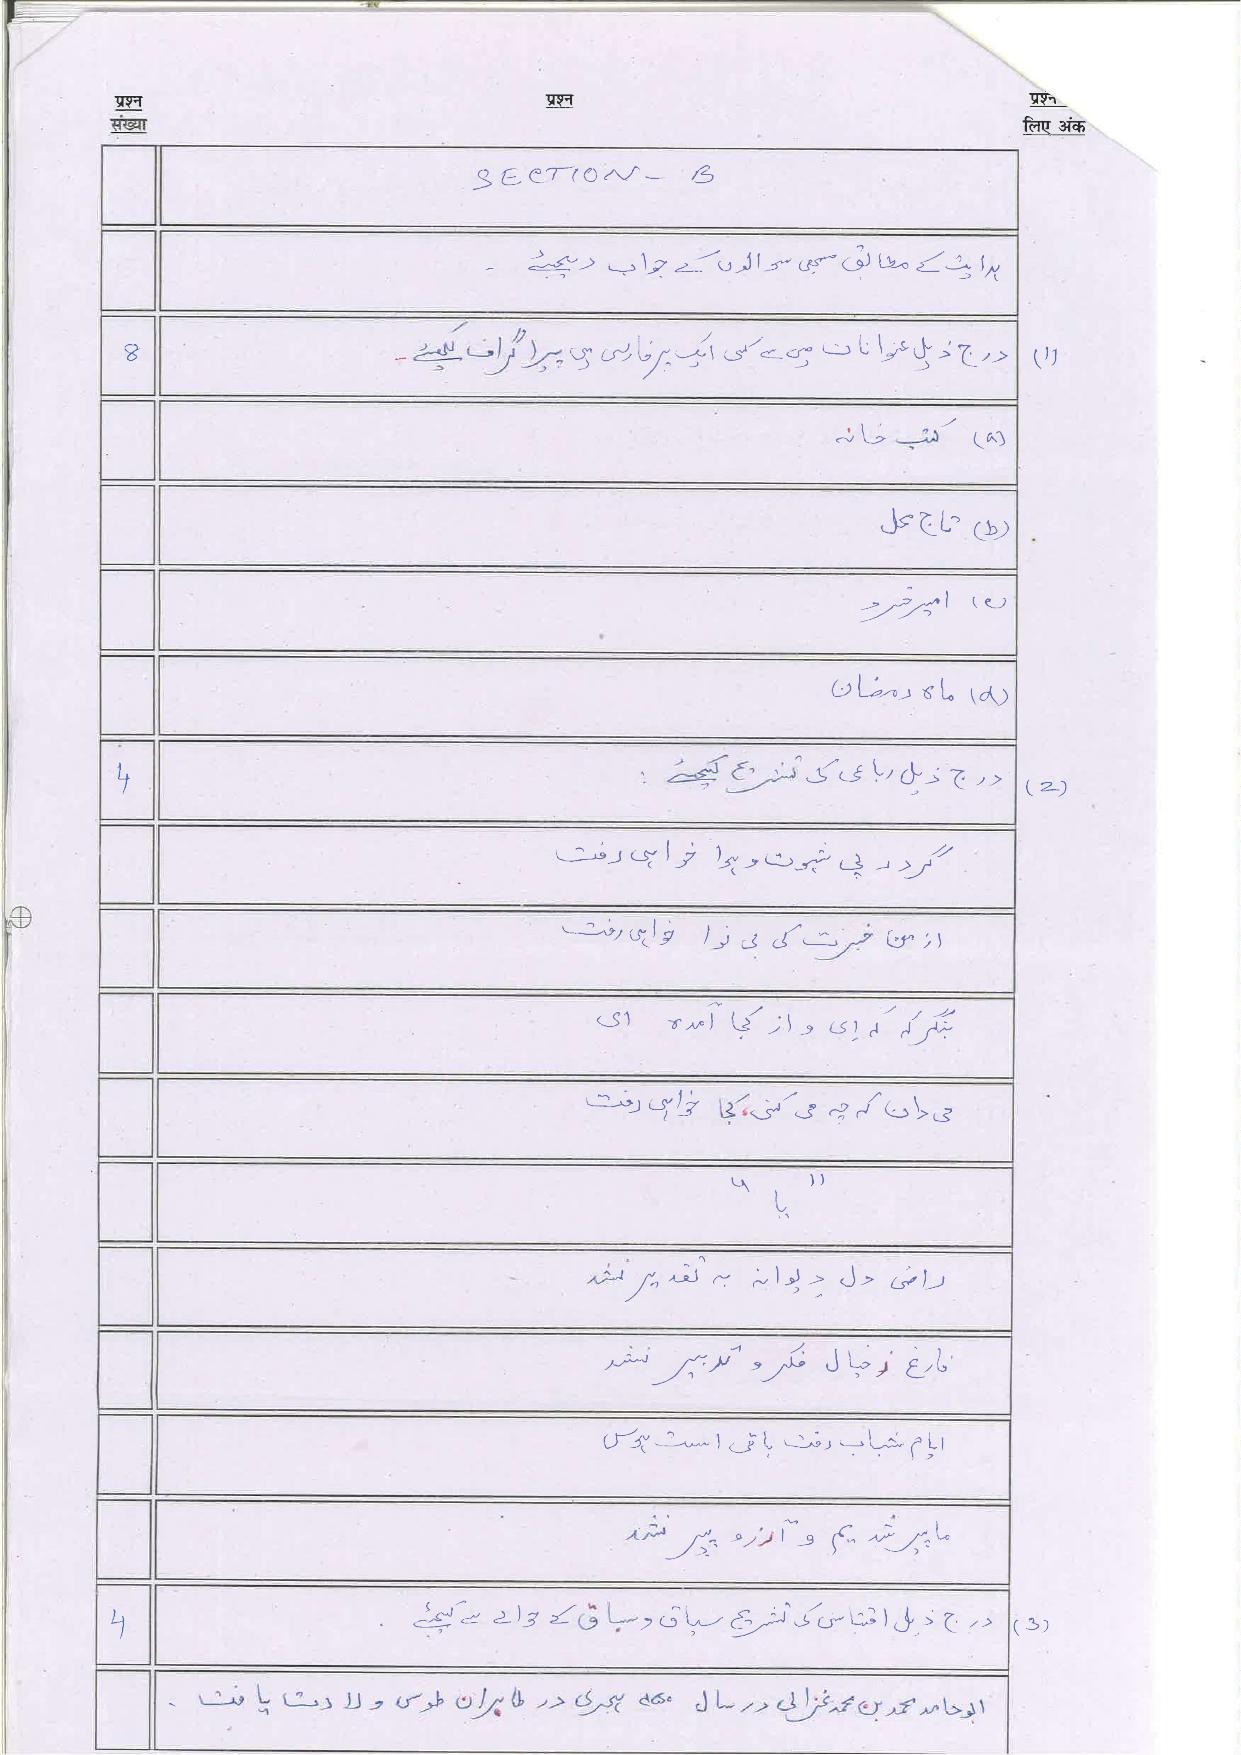 प्रश्न संख्या
प्रश्न
प्रश्न
लिए अंक
SECTION - B
ہدایت کے مطابق سبھی سوالوں کے جواب دیجیئے ۔
(1) درج ذیل عنوانات میں سے کسی ایک پر فارسی میں پیراگراف لکھیئے ۔ 8
(a) کتب خانہ
(b) تاج محل
(c) امیر خسرو
(d) ماہ رمضان
(2) درج ذیل رباعی کی تشریح کیجیئے : 4
گر در پی شہوت و ہوا خواہی رفت
از من خبرت کی بی نوا خواہی رفت
بنگر کہ کہ اِی و از کجا آمدہ ای
می دان کہ چہ می کنی، کجا خواہی رفت
" یا "
راضی دل دیوانہ بہ تقدیر نشد
فارغ ز خیال فکر و تدبیر نشد
ایام شباب رفت باقی است ہوس
ما پیر شدیم و آرزو پیر نشد
(3) درج ذیل اقتباس کی تشریح سیاق و سباق کے حوالے سے کیجیئے ۔ 4
ابو حامد محمد بن محمد غزالی در سال ۴۵۰ ہجری در طابران طوس ولادت یافت ۔